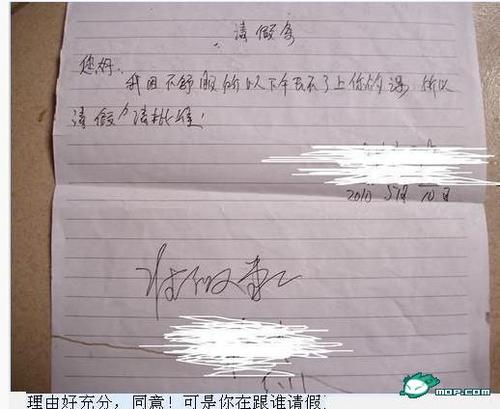 请假条
您好：
我因不舒服所以下午去不了上你的课，所以
请假，请批准！
2010 5月 10日
准假
mop.com
理由好充分，同意！可是你在跟谁请假